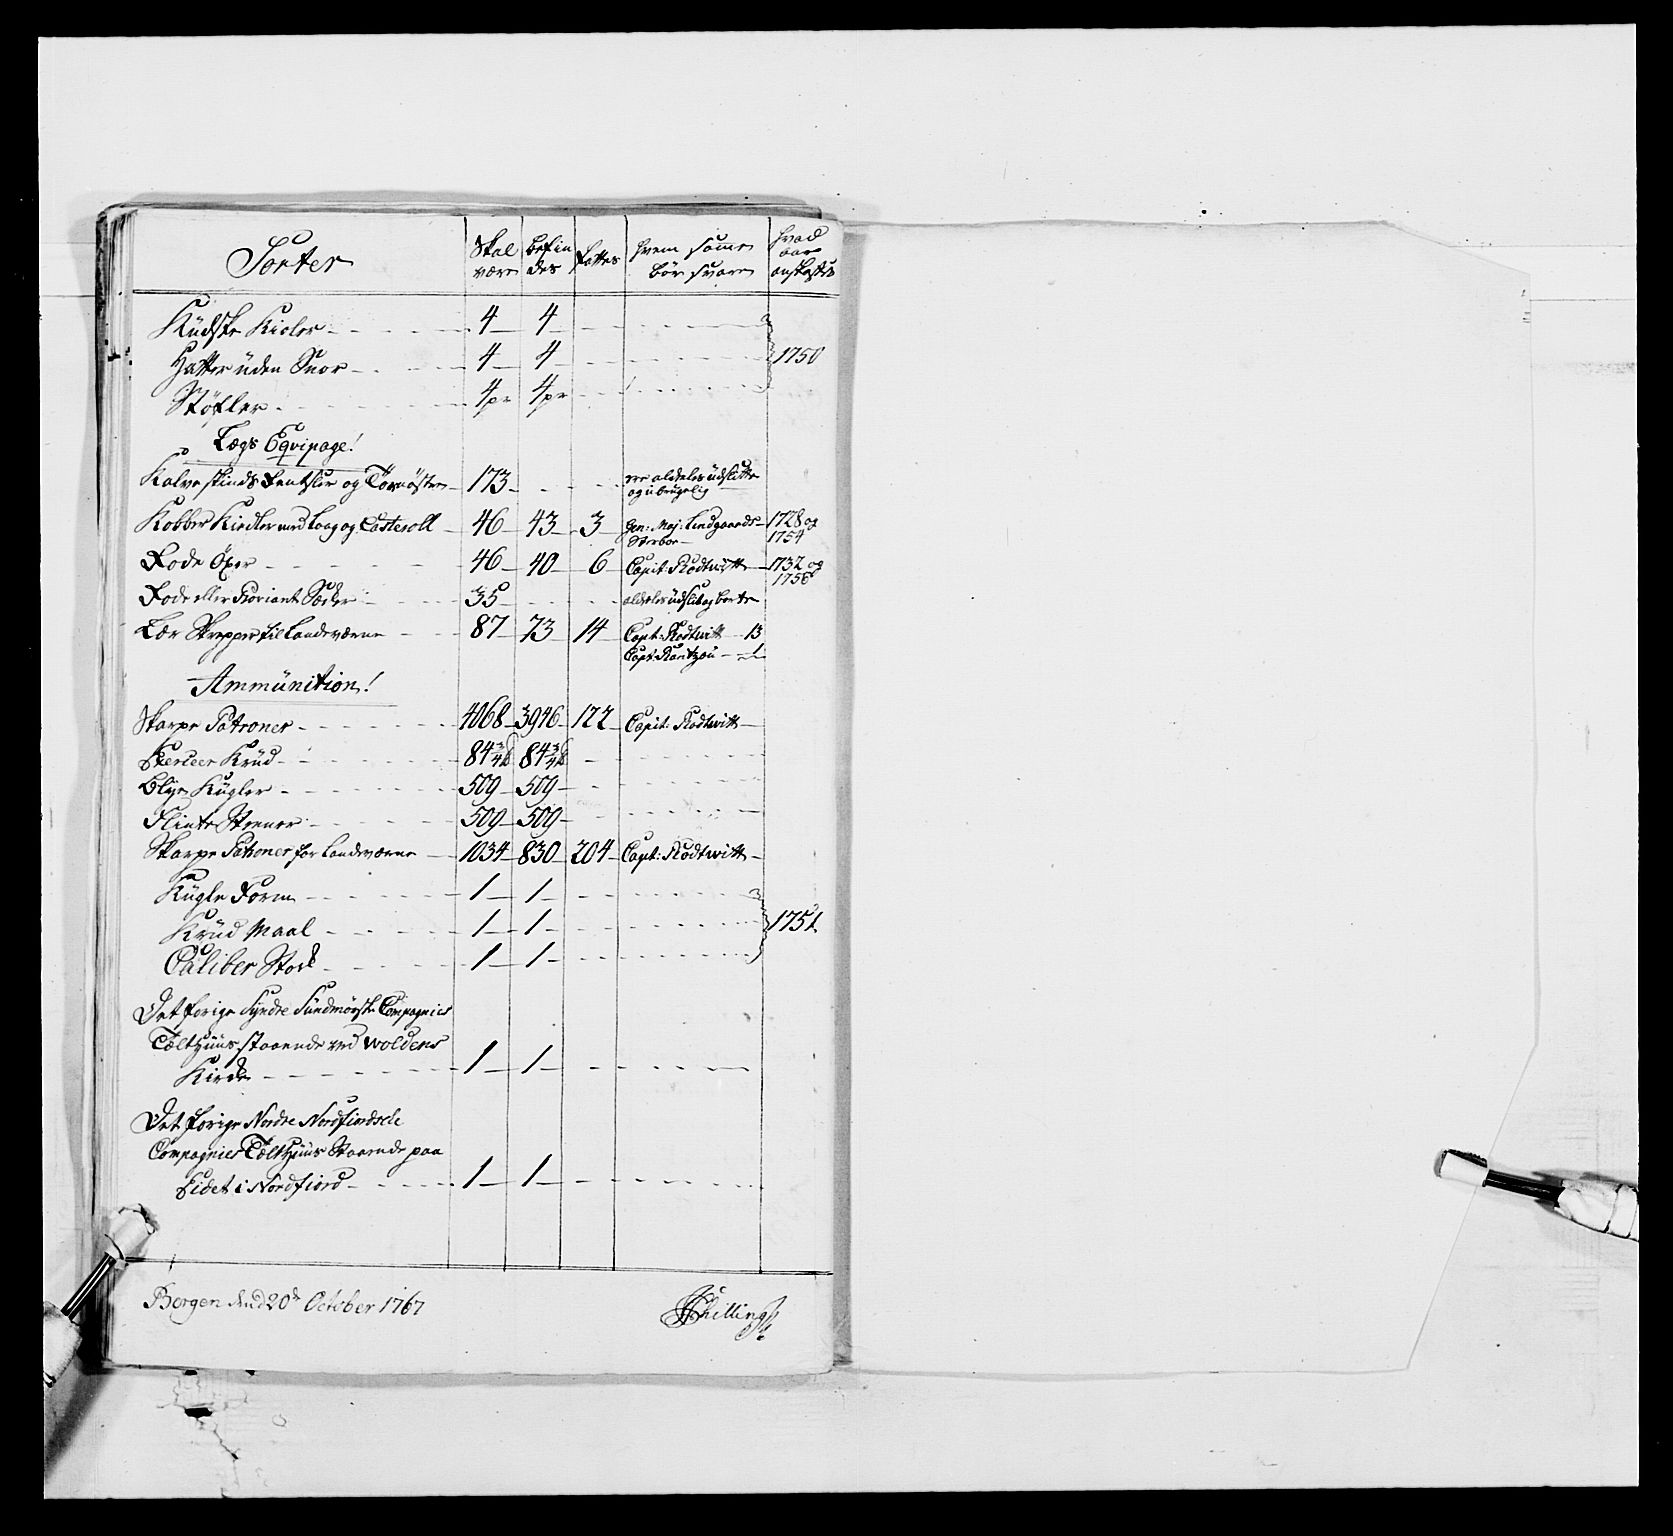 Sorter | Skal være | befin des | fattes | hvem samme bör svare | hvad aar anskaffed
Kudske Kioler | 4 | 4
Hatter uden Snor | 4 | 4 | 1750
Støfler | 4 pr | 4 pr
Lægs Eqvipage!
Kalveskinds Tornöster | 173 | ere aldeles üdslitte og übrugelig
Kobber Kiedler med Laag og Casteroll | 46 | 43 | 3 | Gen: Maj: Lindgaards Sterboe | 1728 og 1754
Öxer | 46 | 40 | 6 | Capit: Rodtwitt | 1732 og 1758
35 | aldeles üdslit og borte
Lær Skrepper til Landeværne | 87 | 73 | 14 | Capt: Rodtwitt 13
Capt: Rantzou 1
Ammünition!
Skarpe Patroner | 4068 | 3946 | 122 | Capit: Rodtwitt
Krüd | 84 3/4 ℔ | 84 3/4 ℔
Blye Kügler | 509 | 509
Flinte Steener | 509 | 509
Skarpe Patroner for Landeværne | 1034 | 830 | 204 | Capt: Rodtwitt
Kugle Form | 1 | 1
Krüd Maal | 1 | 1 | 1751
Caliber Stock | 1 | 1
Det forige Syndre Sündmörske Compagnies
Tælthüüs staaende ved Woldens
Kirke | 1 | 1
Det forige Nordre Nordfiordske
Compagnies Tælthüüs Staaende paa
Eidet i Nordfiord | 1 | 1
Bergen dend 20de October 1767
Schilling